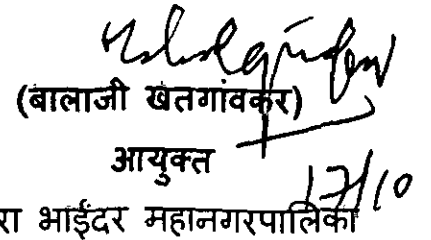 (बालाजी खतगांवकर)
आयुक्त
17/10
रा भाईंदर महानगरपालिका